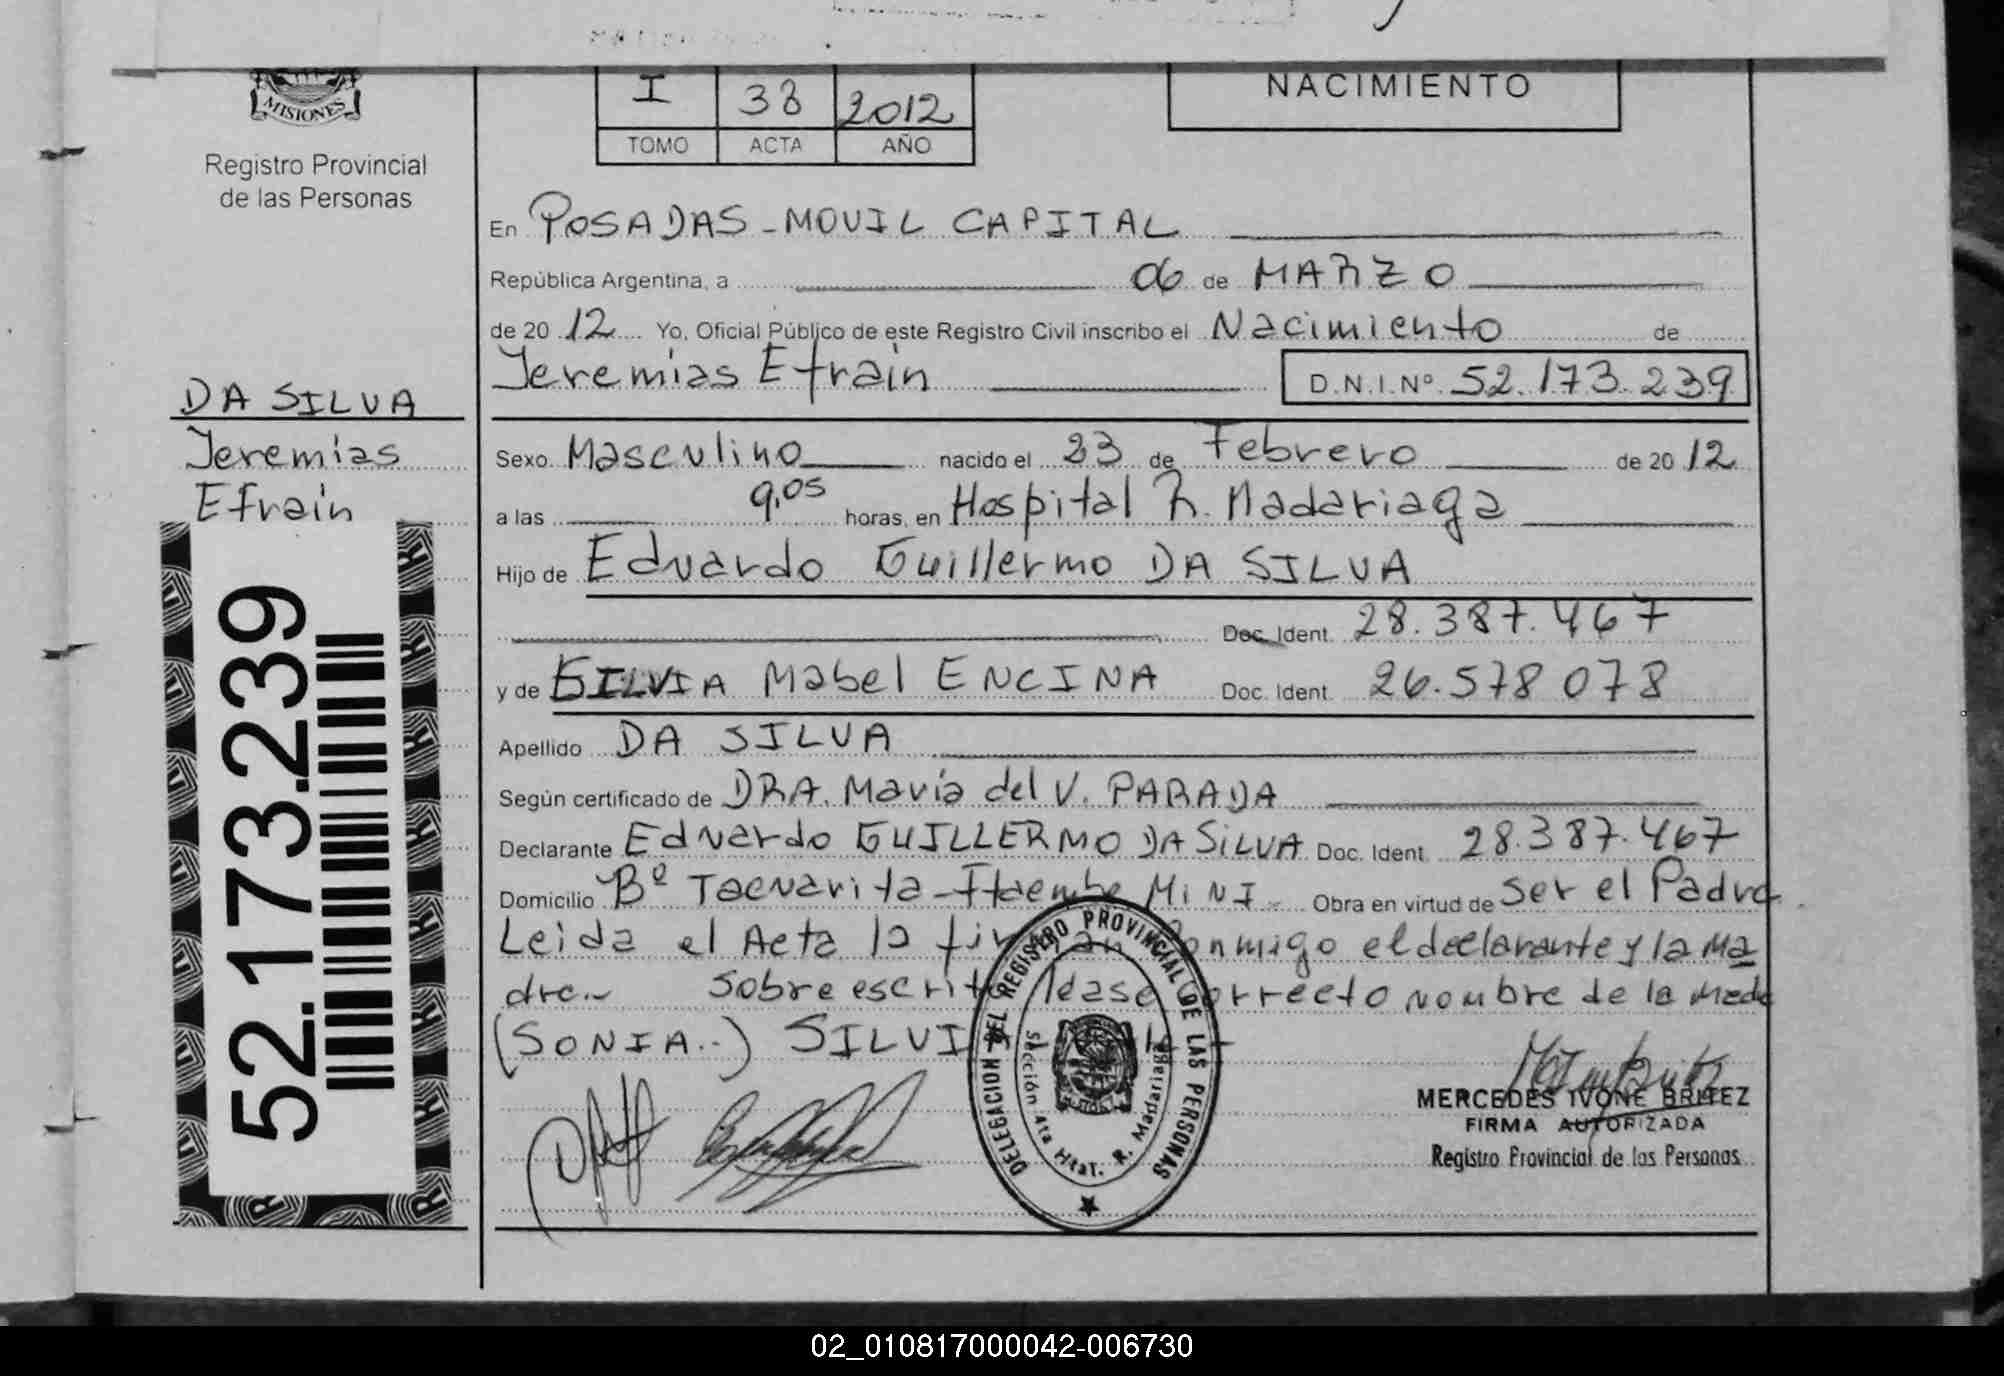 MISIONES
Registro Provincial
de las Personas
I 38 2012
TOMO ACTA AÑO
NACIMIENTO
En POSADAS - MOVIL CAPITAL
República Argentina, a 06 de MARZO
de 20 12 Yo, Oficial Público de este Registro Civil inscribo el Nacimiento de
Jeremías Efraín D.N.I.Nº 52.173.239
DA SILVA
Jeremías
Efraín
52.173.239
Sexo Masculino nacido el 23 de Febrero de 20 12
a las 9,05 horas, en Hospital R. Madariaga
Hijo de Eduardo Guillermo DA SILVA
Doc. Ident. 28.387.467
y de SILVIA Mabel ENCINA Doc. Ident. 26.578 078
Apellido DA SILVA
Según certificado de DRA. María del V. PARADA
Declarante Eduardo GUILLERMO DA SILVA Doc. Ident. 28.387.467
Domicilio Bº Tacuarita - Itaembe MINI Obra en virtud de Ser el Padre
Leida el Acta la firman conmigo el declarante y la Ma
dre.. Sobre escrito léase correcto nombre de la Madre
(SONIA..) SILVIA
DELEGACION DEL REGISTRO PROVINCIAL DE LAS PERSONAS
Sección 4ta Htal. R. Madariaga
MERCEDES IVONE BRITEZ
FIRMA AUTORIZADA
Registro Provincial de las Personas
02_010817000042-006730